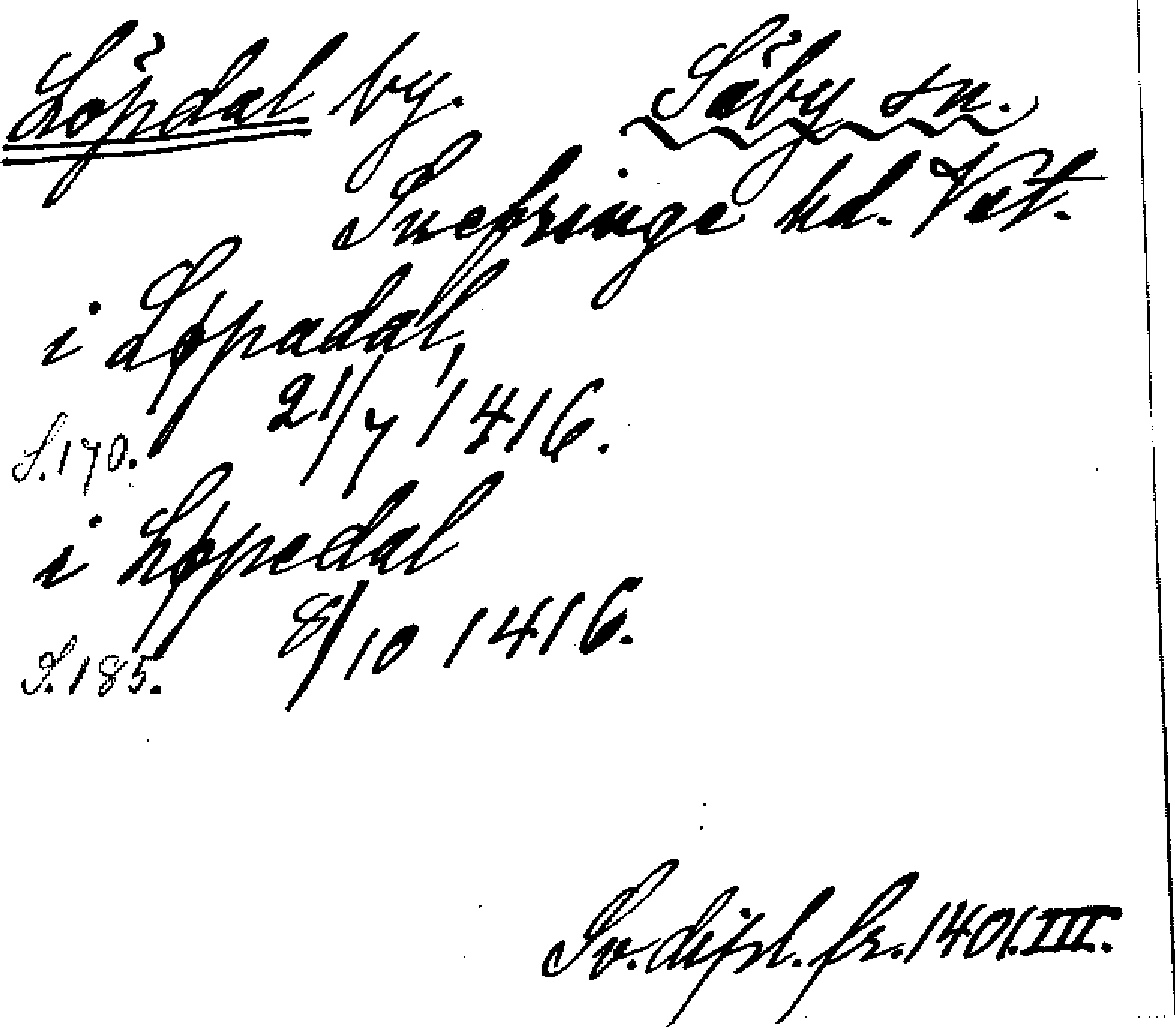 Löpdal by. Säby sn.
Snefringe hd. Vstl.
i Løpadal,
S.170. 21/7 1416.
i Løpedal
S.185. 8/10 1416.
Sv. dipl. fr. 1401. III.